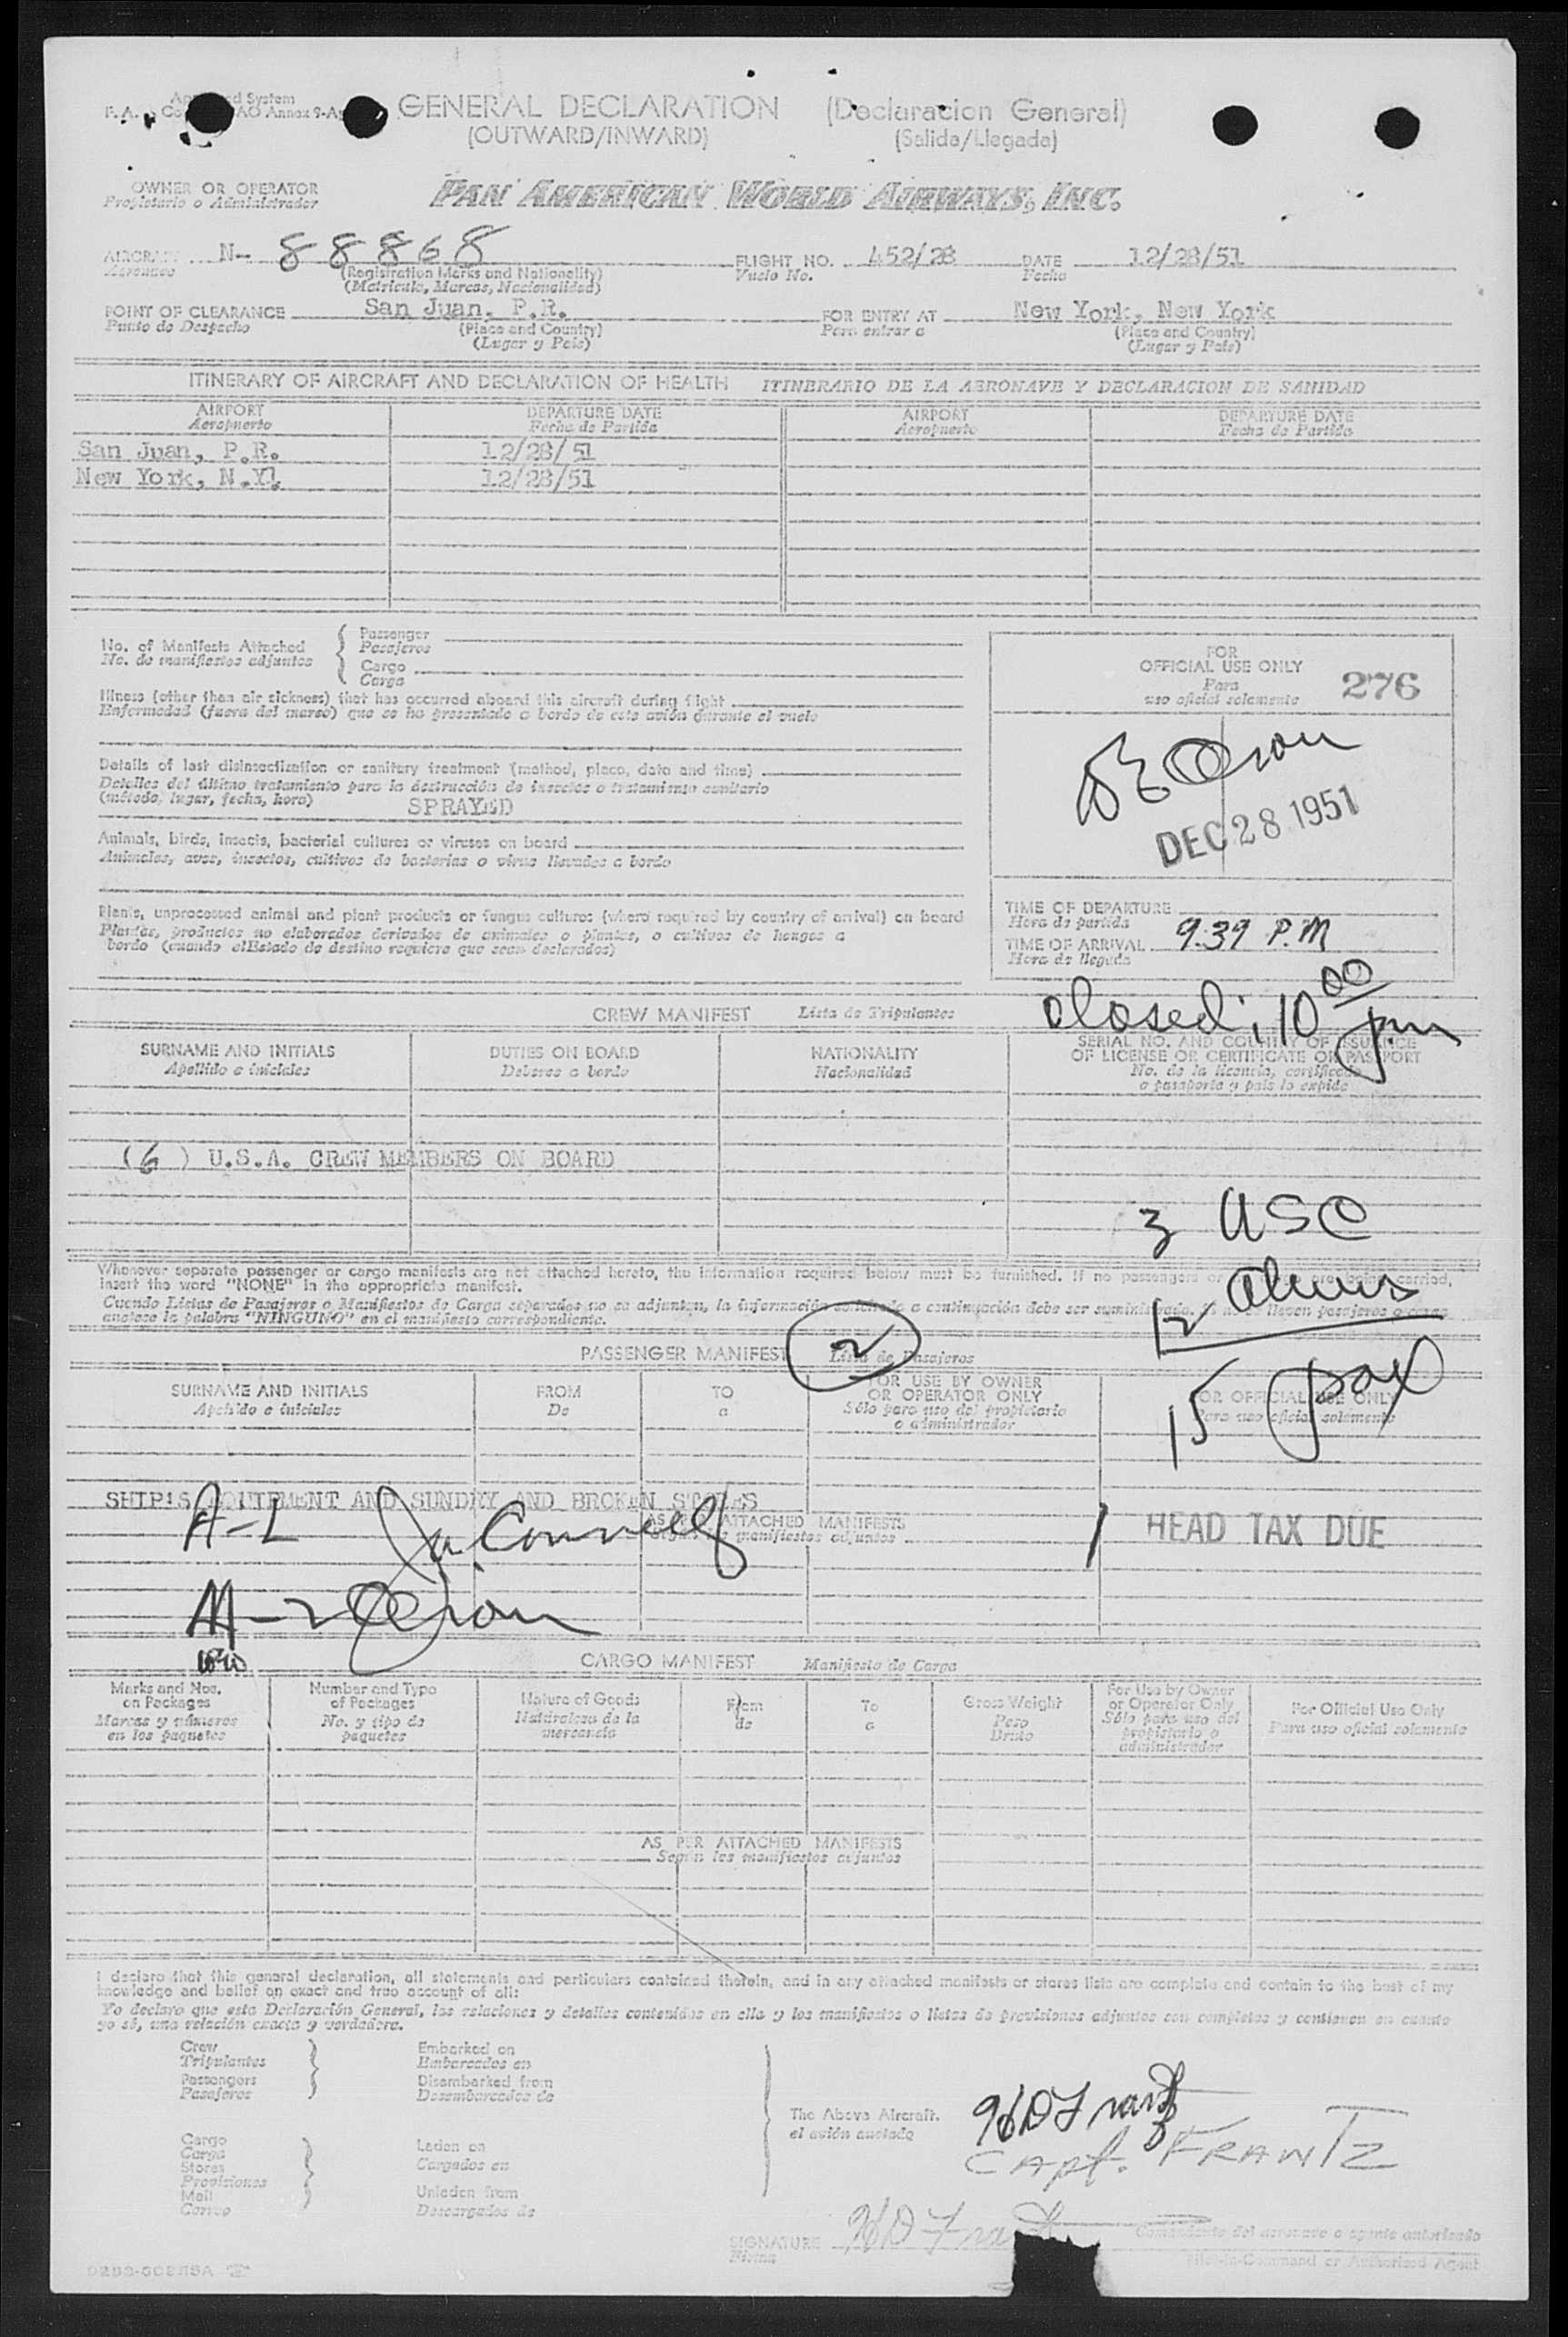 GENERAL DECLARATION (Declaracion General)
(OUTWARD/INWARD) (Salida/Llegada)
OWNER OR OPERATOR PAN AMERICAN WORLD AIRWAYS, INC.
Propietario o Administrador
AIRCRAFT N- 88868 FLIGHT NO. 452/28 DATE 12/28/51
Aeronave (Registration Marks and Nationality) Vuelo No. Fecha
(Matricula, Marcas, Nacionalidad)
POINT OF CLEARANCE San Juan, P.R. FOR ENTRY AT New York, New York
Punto de Despacho (Place and Country) Para entrar a (Place and Country)
(Lugar y Pais) (Lugar y Pais)
ITINERARY OF AIRCRAFT AND DECLARATION OF HEALTH ITINERARIO DE LA AERONAVE Y DECLARACION DE SANIDAD
AIRPORT DEPARTURE DATE AIRPORT DEPARTURE DATE
Aeropuerto Fecha de Partida Aeropuerto Fecha de Partida
San Juan, P.R. 12/28/51
New York, N.Y. 12/28/51
No. of Manifests Attached Passenger
No. de manifiestos adjuntos Pasajeros
Cargo
Carga
Illness (other than air sickness) that has occurred aboard this aircraft during flight
Enfermedad (fuera del mareo) que se ha presentado a bordo de este avión durante el vuelo
Details of last disinsectization or sanitary treatment (method, place, date and time)
Detalles del último tratamiento para la destrucción de insectos o tratamiento sanitario
(método, lugar, fecha, hora) SPRAYED
Animals, birds, insects, bacterial cultures or viruses on board
Animales, aves, insectos, cultivos de bacterias o virus llevados a bordo
Plants, unprocessed animal and plant products or fungus cultures (where required by country of arrival) on board
Plantas, productos no elaborados derivados de animales o plantas, o cultivos de hongos a
bordo (cuando el Estado de destino requiere que sean declarados)
FOR
OFFICIAL USE ONLY 276
Para
uso oficial solamente
DEC 28 1951
TIME OF DEPARTURE
Hora de partida
TIME OF ARRIVAL 9:39 P.M
Hora de llegada
closed; 10 00 pm
CREW MANIFEST Lista de Tripulantes
SURNAME AND INITIALS DUTIES ON BOARD NATIONALITY SERIAL NO. AND COUNTRY OF ISSUANCE
Apellido e iniciales Deberes a bordo Nacionalidad OF LICENSE OR CERTIFICATE OR PASSPORT
No. de la licencia, certificado
o pasaporte y pais lo expide
(6) U.S.A. CREW MEMBERS ON BOARD
3 USC
12 aliens
15 pax
Whenever separate passenger or cargo manifests are not attached hereto, the information required below must be furnished. If no passengers or cargo are being carried,
insert the word "NONE" in the appropriate manifest.
Cuando Listas de Pasajeros o Manifiestos de Carga separados no se adjunten, la información solicitada a continuación debe ser suministrada. Si no se llevan pasajeros o carga
anótese la palabra "NINGUNO" en el manifiesto correspondiente.
PASSENGER MANIFEST 2 Lista de Pasajeros
SURNAME AND INITIALS FROM TO FOR USE BY OWNER FOR OFFICIAL USE ONLY
Apellido e iniciales De a OR OPERATOR ONLY Para uso oficial solamente
Sólo para uso del propietario
o administrador
SHIP'S EQUIPMENT AND SUNDRY AND BROKEN STORES
AS PER ATTACHED MANIFESTS
manifiestos adjuntos
A-L
1 HEAD TAX DUE
CARGO MANIFEST Manifiesto de Carga
Marks and Nos. Number and Type Nature of Goods From To Gross Weight For Use by Owner For Official Use Only
on Packages of Packages Naturaleza de la de a Peso or Operator Only Para uso oficial solamente
Marcas y números No. y tipo de mercancia Bruto Sólo para uso del
en los paquetes paquetes propietario o
administrador
AS PER ATTACHED MANIFESTS
Según los manifiestos adjuntos
I declare that this general declaration, all statements and particulars contained therein, and in any attached manifests or stores lists are complete and contain to the best of my
knowledge and belief an exact and true account of all:
Yo declaro que esta Declaración General, las relaciones y detalles contenidos en ella y los manifiestos o listas de provisiones adjuntos son completos y contienen en cuanto
yo sé, una relación exacta y verdadera.
Crew Embarked on
Tripulantes Embarcados en
Passengers Disembarked from
Pasajeros Desembarcados de
The Above Aircraft.
el avión anotado
Cargo Laden on
Carga Cargados en
Stores
Provisiones
Mail Unladen from
Correo Descargados de
HD Frantz
CAPT. FRANTZ
SIGNATURE HD Frantz Comandante del aeronave o agente autorizado
Firma Pilot-in-Command or Authorized Agent